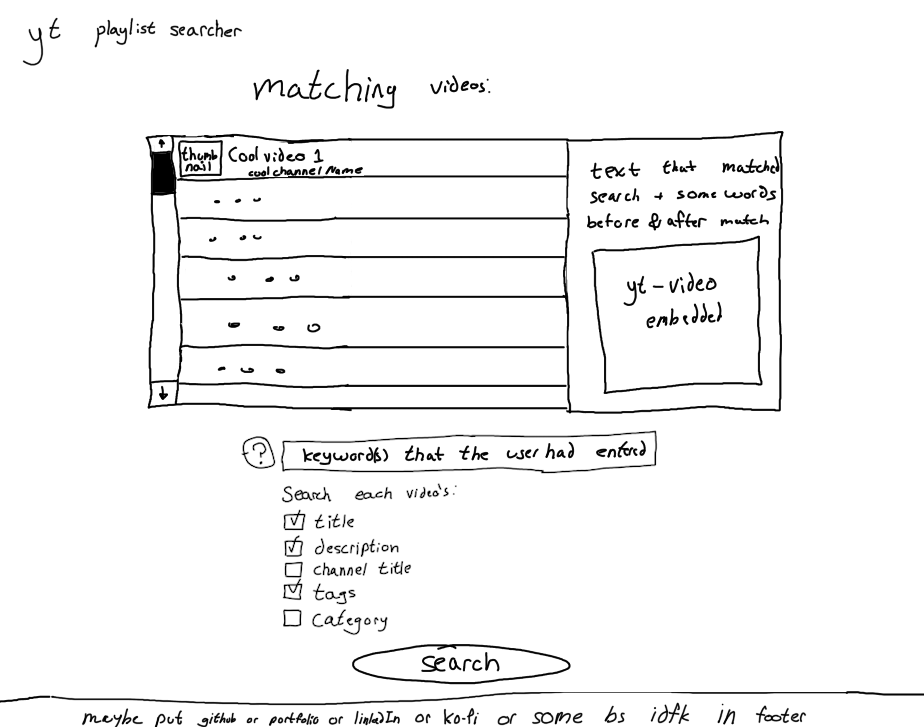 yt playlist searcher
matching videos:
↑
thumb
nail
Cool video 1
cool channel Name
...
...
...
...
...
↓
text that matched
search + some words
before & after match
yt-video
embedded
? keyword(s) that the user had entered
Search each video's:
title
description
channel title
tags
category
search
maybe put github or portfolio or linkedIn or ko-fi or some bs idfk in footer